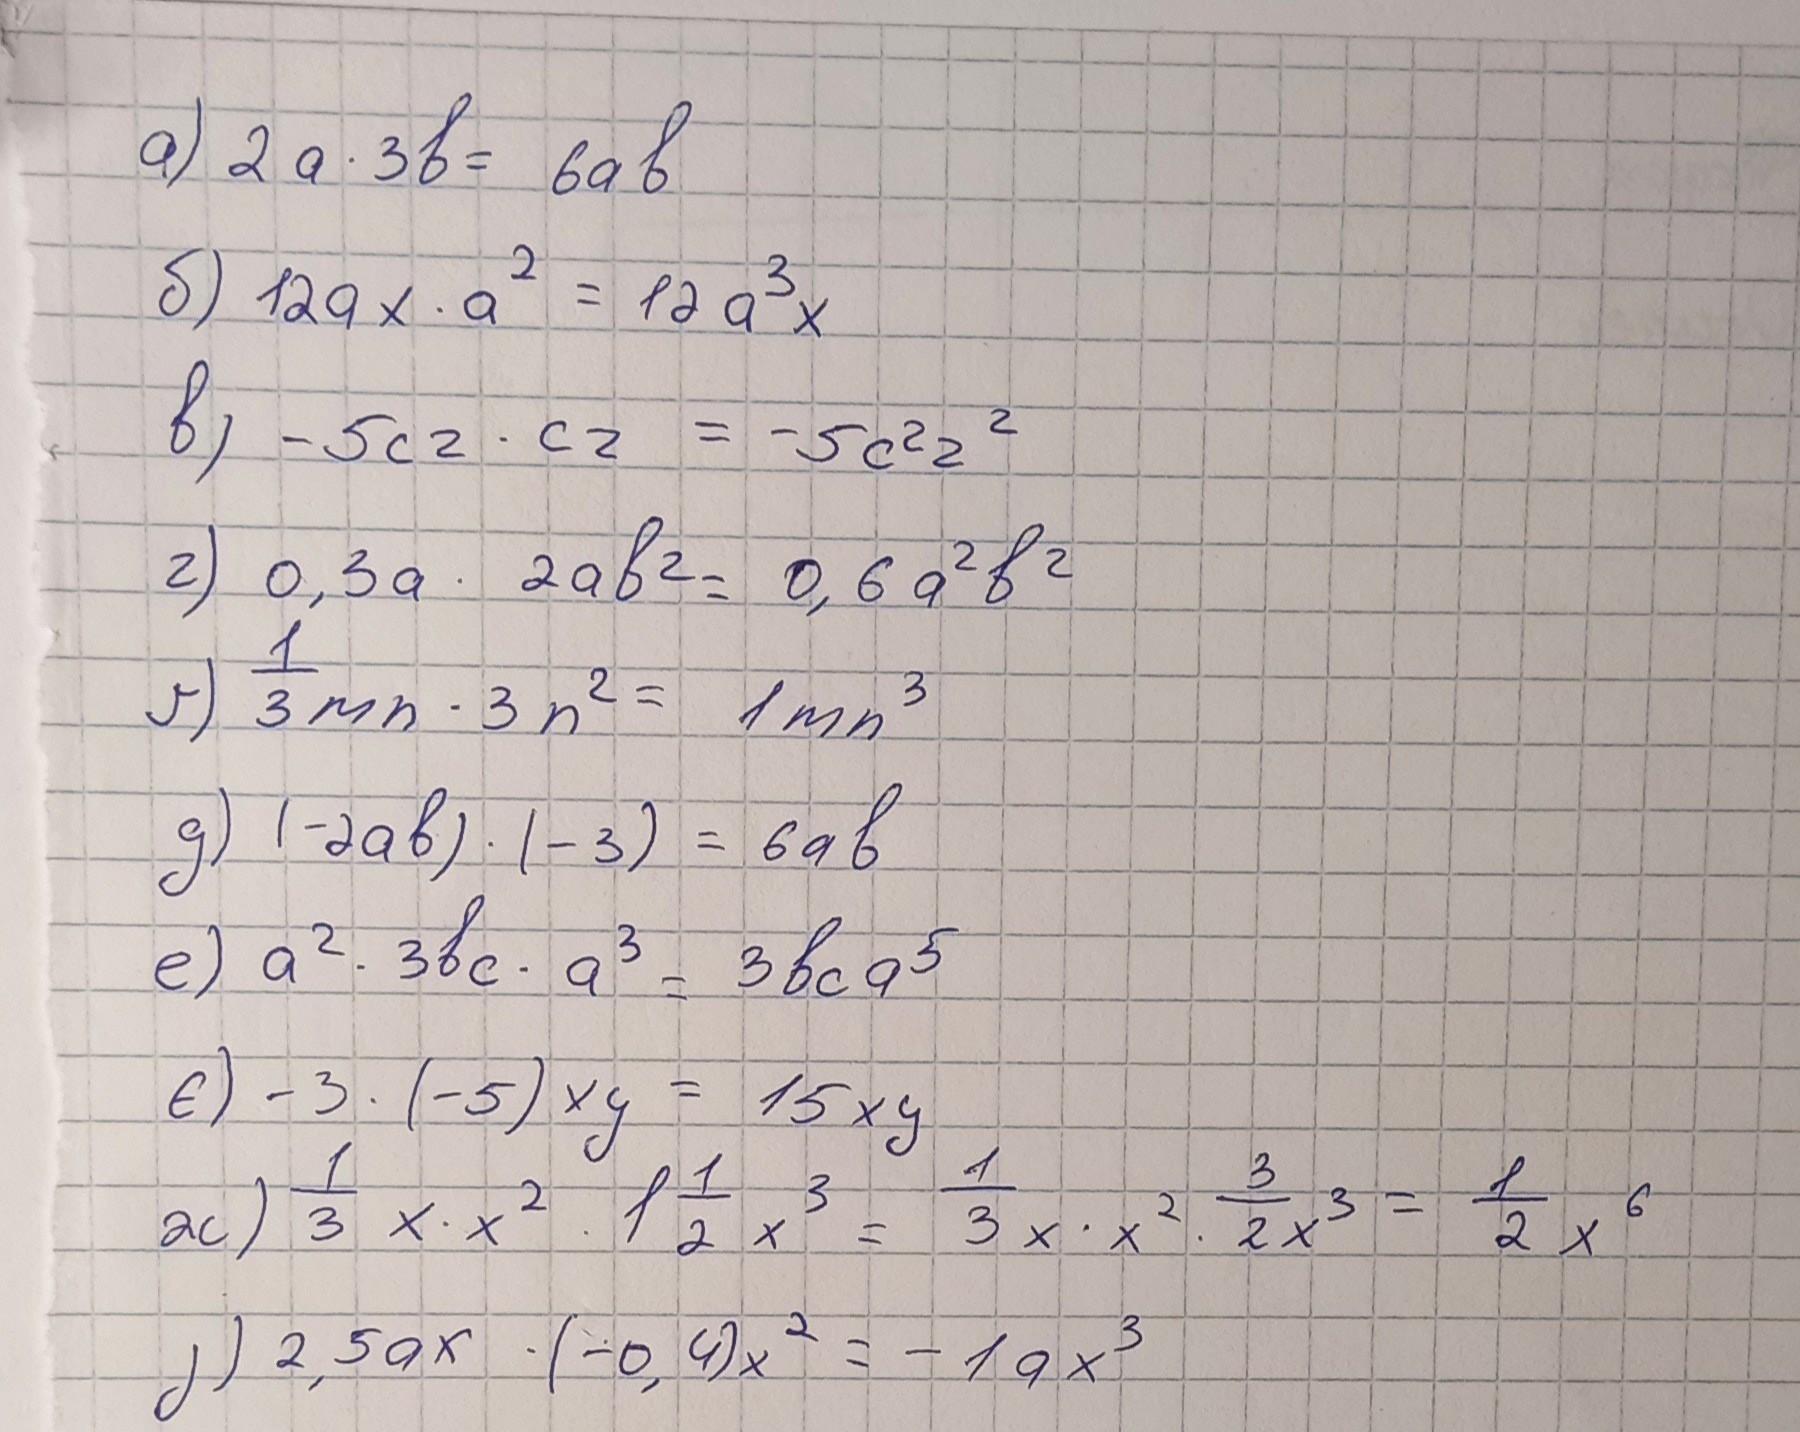 а) 2a · 3b = 6ab
б) 12ax · a² = 12a³x
в) -5cz · cz = -5c²z²
г) 0,3a · 2ab² = 0,6a²b²
ґ) 1/3 mn · 3n² = 1mn³
д) (-2ab) · (-3) = 6ab
е) a² · 3bc · a³ = 3bca⁵
є) -3 · (-5)xy = 15xy
ж) 1/3 x · x² · 1 1/2 x³ = 1/3 x · x² · 3/2 x³ = 1/2 x⁶
з) 2,5ax · (-0,4)x² = -1ax³